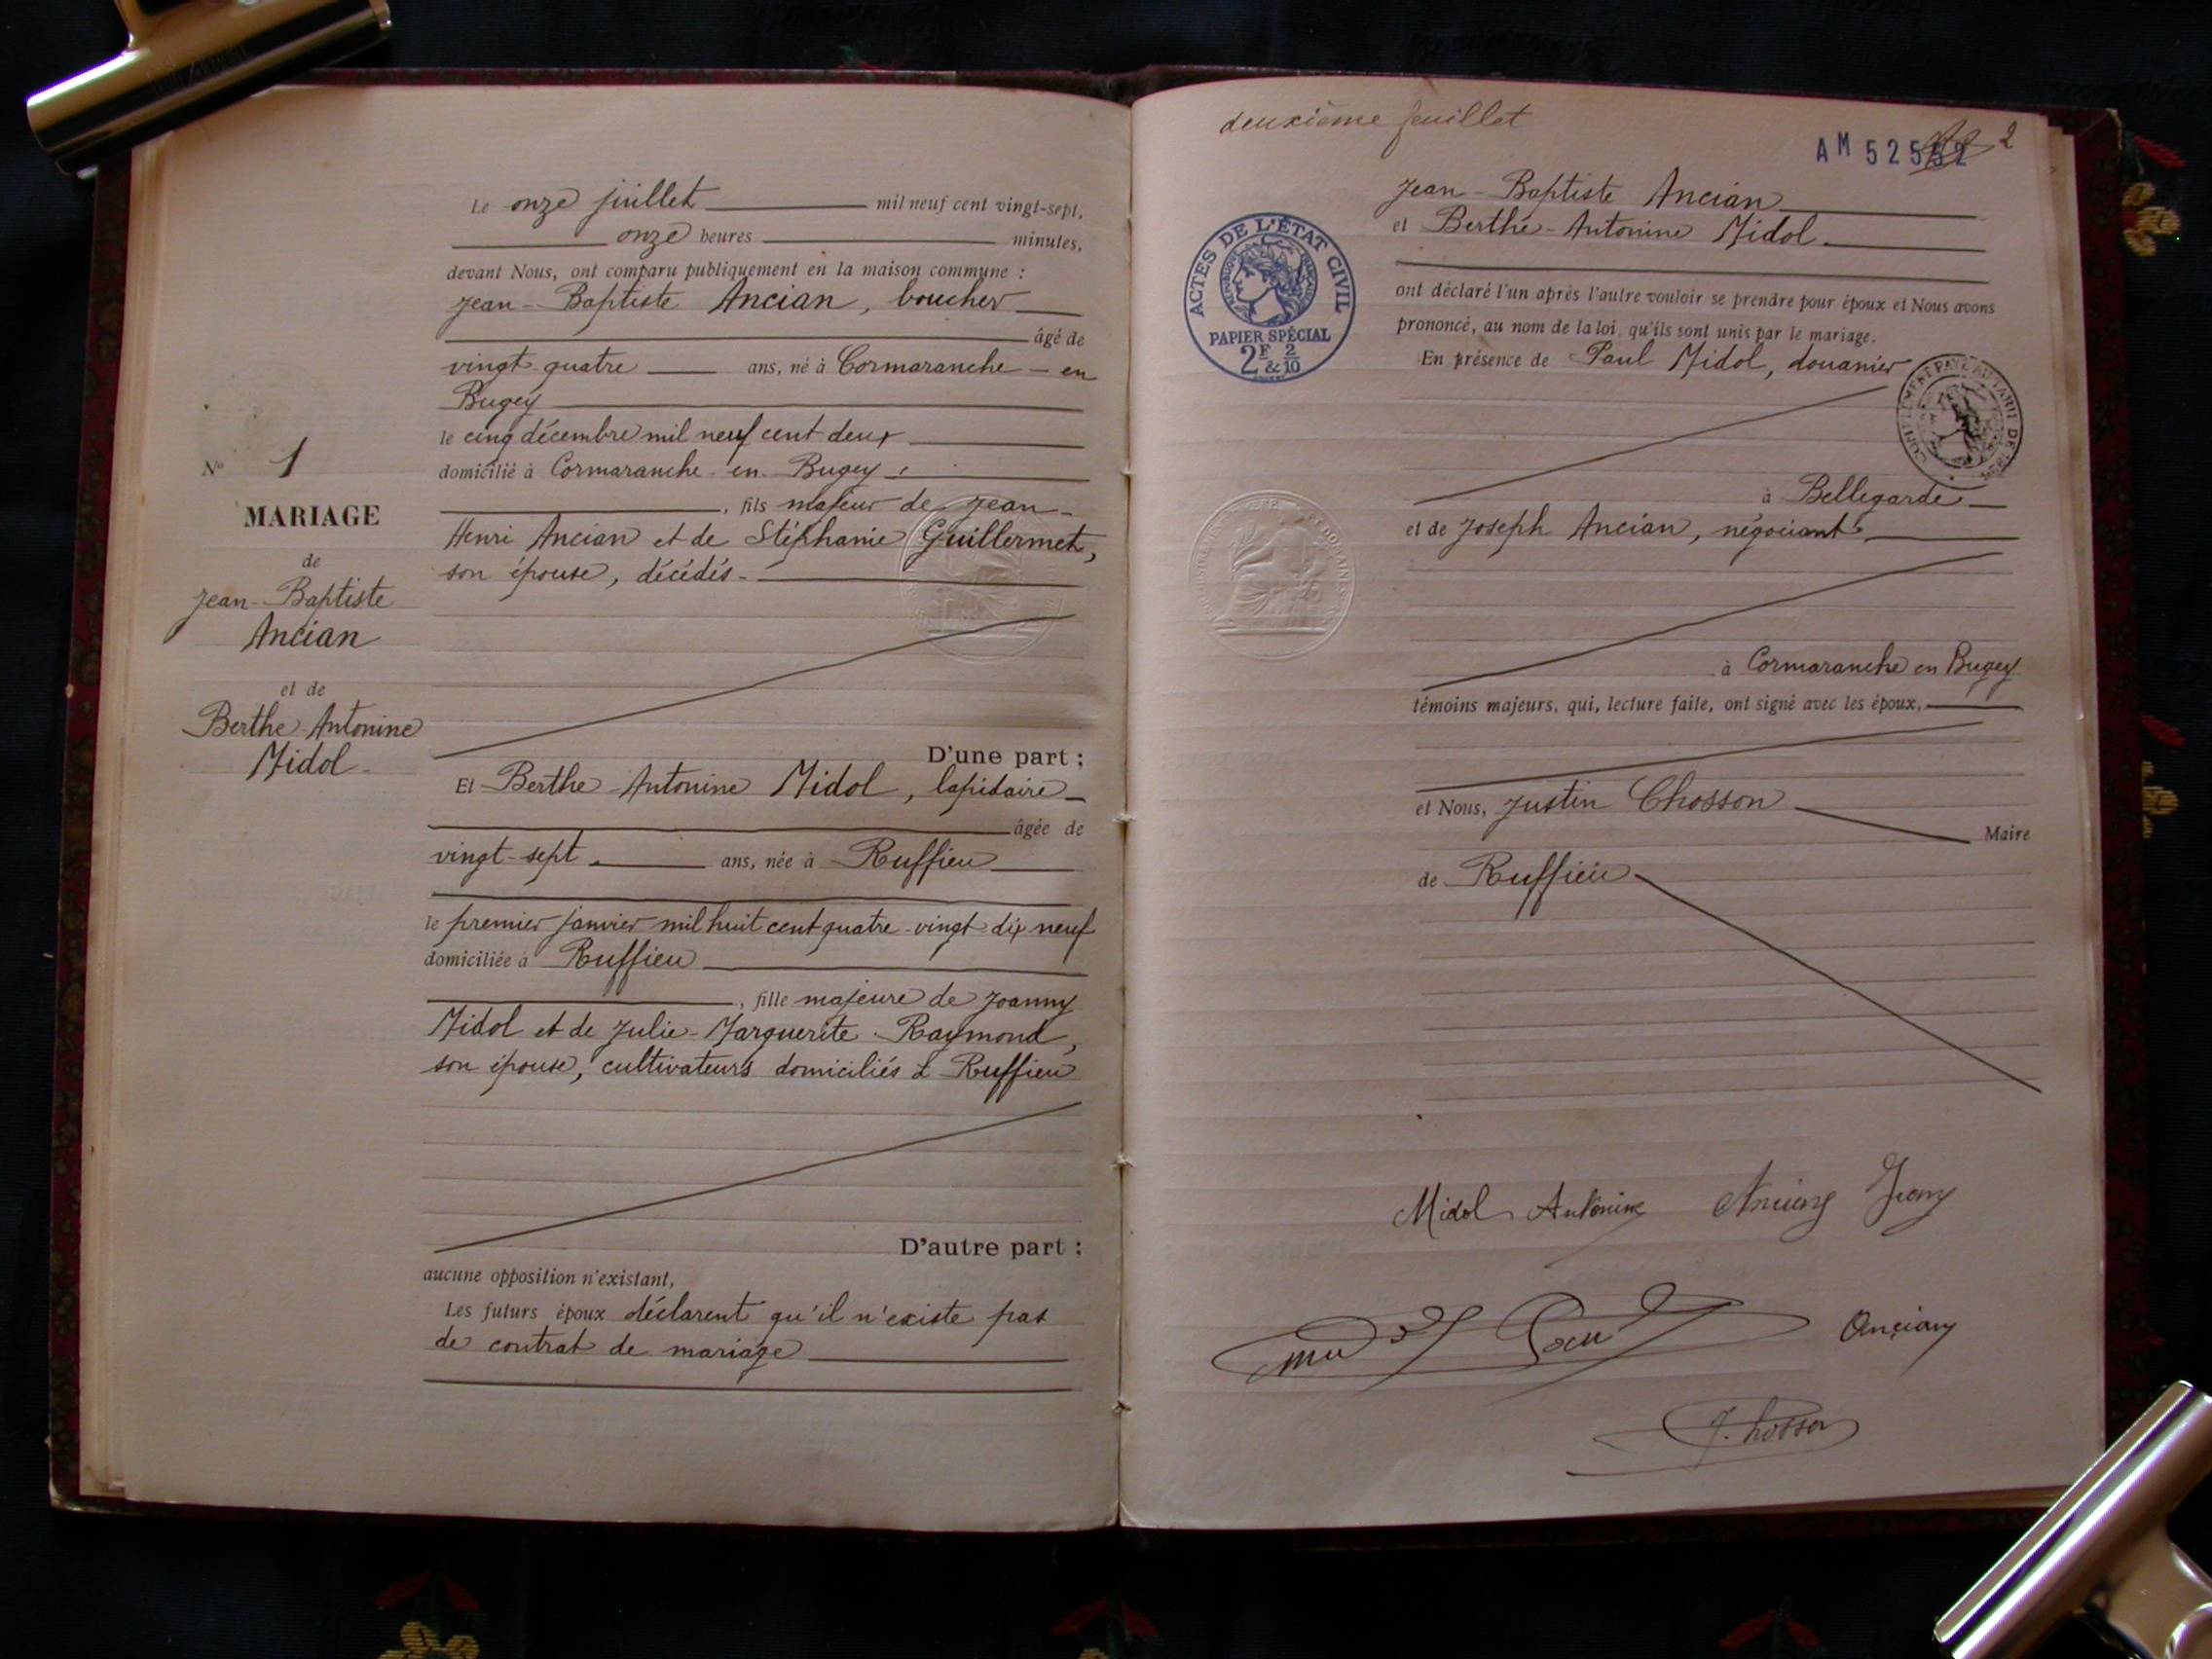 Le onze juillet mil neuf cent vingt-sept,
onze heures minutes,
devant Nous, ont comparu publiquement en la maison commune :
Jean-Baptiste Ancian, boucher
âgé de
vingt-quatre ans, né à Cormaranche-en
Bugey
le cinq décembre mil neuf cent deux
domicilié à Cormaranche-en-Bugey,
, fils majeur de Jean-
Henri Ancian et de Stéphanie Guillermet,
son épouse, décédés.
D'une part ;
Et Berthe-Antonine Midol, lapidaire
âgée de
vingt-sept ans, née à Ruffieu
le premier janvier mil huit cent quatre-vingt-dix neuf
domiciliée à Ruffieu
, fille majeure de Joanny
Midol et de Julie-Marguerite Raymond,
son épouse, cultivateurs domiciliés à Ruffieu
D'autre part ;
aucune opposition n'existant,
Les futurs époux déclarent qu'il n'existe pas
de contrat de mariage
N° 1
MARIAGE
de
Jean-Baptiste
Ancian
et de
Berthe-Antonine
Midol
deuxième feuillet
2
AM
Jean-Baptiste Ancian
et Berthe-Antonine Midol.
ont déclaré l'un après l'autre vouloir se prendre pour époux et Nous avons
prononcé, au nom de la loi, qu'ils sont unis par le mariage.
En présence de Paul Midol, douanier
à Bellegarde
et de Joseph Ancian, négociant,
à Cormaranche en Bugey
témoins majeurs, qui, lecture faite, ont signé avec les époux,
et Nous, Justin Chosson
Maire
de Ruffieu
ACTES DE L'ÉTAT CIVIL
RÉPUBLIQUE FRANÇAISE
PAPIER SPÉCIAL
2F & 2/10
Midol Antonine
Ancian
J. Chosson